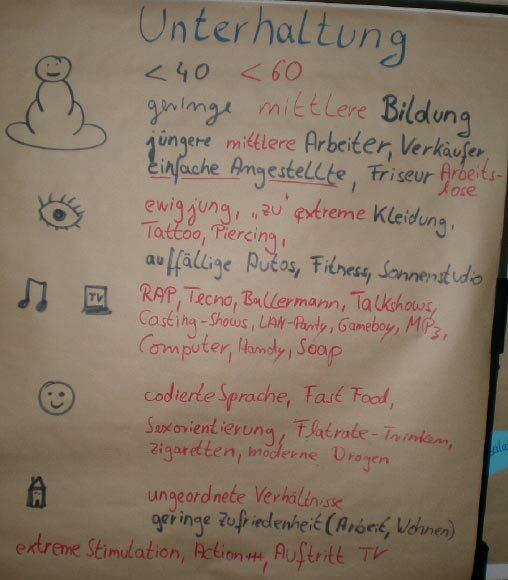 Unterhaltung
< 40 < 60
geringe mittlere Bildung
jüngere mittlere Arbeiter, Verkäufer
einfache Angestellte, Friseur Arbeits-
lose
ewig jung, „zu" extreme Kleidung,
Tattoo, Piercing,
auffällige Autos, Fitness, Sonnenstudio
TV
RAP, Tecno, Ballermann, Talkshows,
Casting-Shows, LAN-Party, Gameboy, MP3,
Computer, Handy, Soap
codierte Sprache, Fast Food,
Sexorientierung, Flatrate-Trinken,
Zigaretten, moderne Drogen
ungeordnete Verhältnisse
geringe Zufriedenheit (Arbeit, Wohnen)
extreme Stimulation, Action+++, Auftritt TV